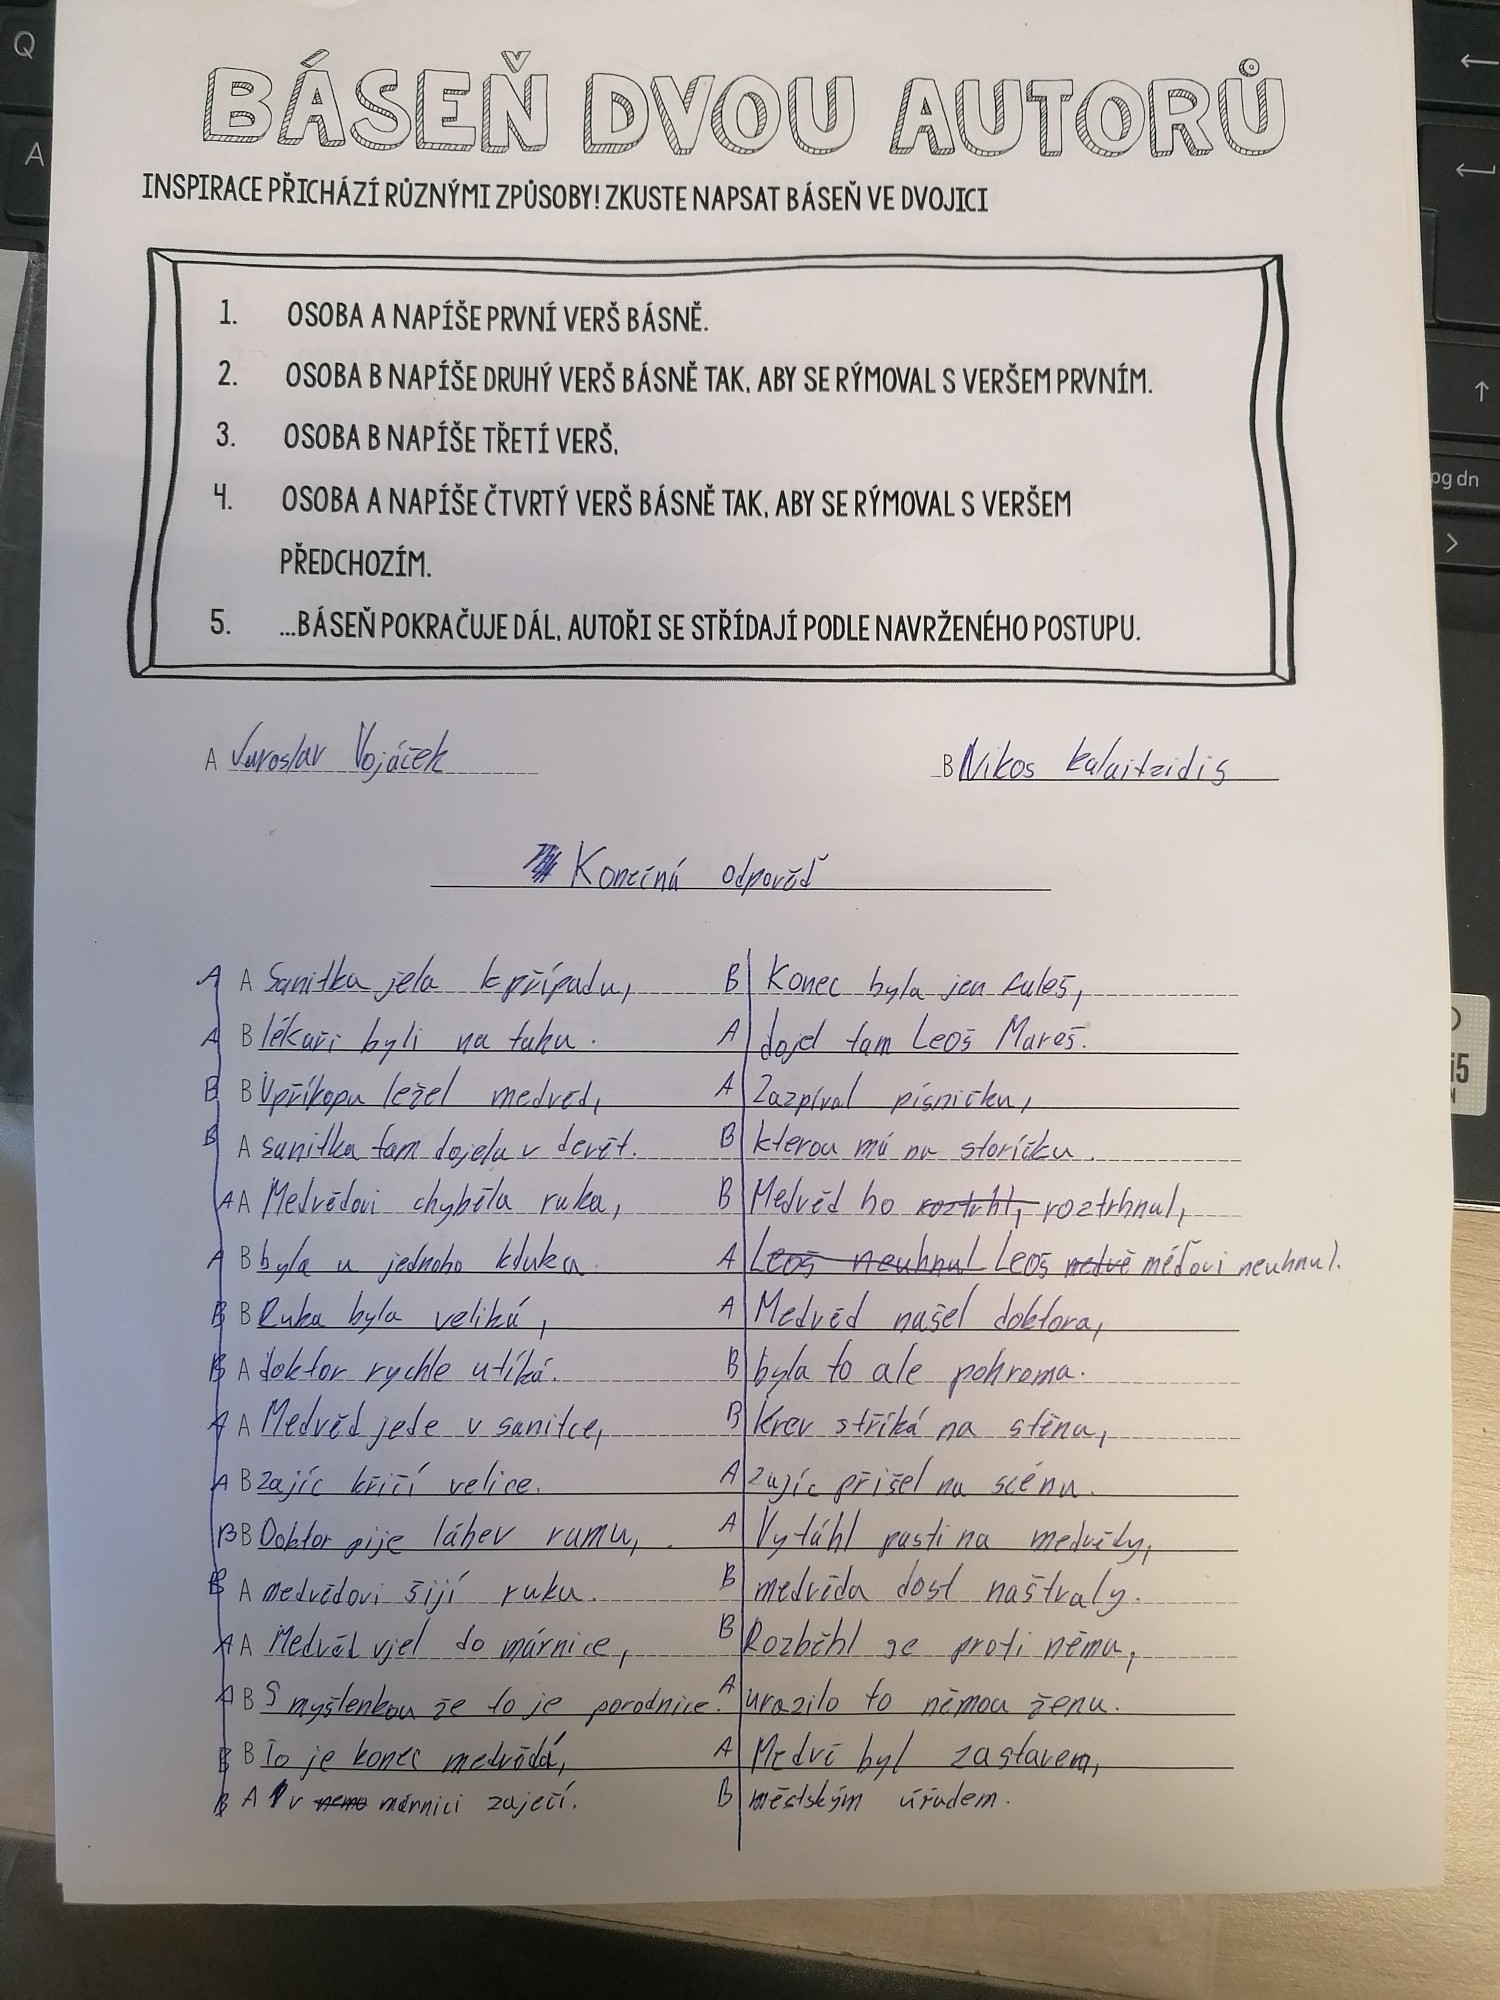 BÁSEŇ DVOU AUTORŮ
INSPIRACE PŘICHÁZÍ RŮZNÝMI ZPŮSOBY! ZKUSTE NAPSAT BÁSEŇ VE DVOJICI
1. OSOBA A NAPÍŠE PRVNÍ VERŠ BÁSNĚ.
2. OSOBA B NAPÍŠE DRUHÝ VERŠ BÁSNĚ TAK, ABY SE RÝMOVAL S VERŠEM PRVNÍM.
3. OSOBA B NAPÍŠE TŘETÍ VERŠ,
4. OSOBA A NAPÍŠE ČTVRTÝ VERŠ BÁSNĚ TAK, ABY SE RÝMOVAL S VERŠEM
PŘEDCHOZÍM.
5. ...BÁSEŇ POKRAČUJE DÁL, AUTOŘI SE STŘÍDAJÍ PODLE NAVRŽENÉHO POSTUPU.
A Jaroslav Vojáček
B Nikos Kalaitzidis
Konečná odpověď
A A Sanitka jela k případu,
A B lékaři byli na tahu.
B B V příkopu ležel medvěd,
B A sanitka tam dojela v devět.
A A Medvědovi chyběla ruka,
A B byla u jednoho kluka.
B B Ruka byla veliká,
B A doktor rychle utíká.
A A Medvěd jede v sanitce,
A B zajíc křičí velice.
B B Doktor pije láhev rumu,
B A medvědovi šijí ruku.
A A Medvěd vjel do márnice,
A B S myšlenkou že to je porodnice.
B B To je konec medvědá,
B A v nemo márnici zaječí.
B Konec byla jen faleš,
A dojel tam Leoš Mareš.
A Zazpíval písničku,
B kterou má na storíčku.
B Medvěd ho roztrhl, roztrhnul,
A Leoš neuhnul Leoš medvě méďovi neuhnul.
A Medvěd našel doktora,
B byla to ale pohroma.
B Krev stříká na stěnu,
A zajíc přišel na scénu.
A Vytáhl pasti na medvědy,
B medvěda dost naštvaly.
B Rozběhl se proti němu,
A urazilo to němou ženu.
A Medvě byl zastaven,
B městským úřadem.
Q
A
pg dn
i5